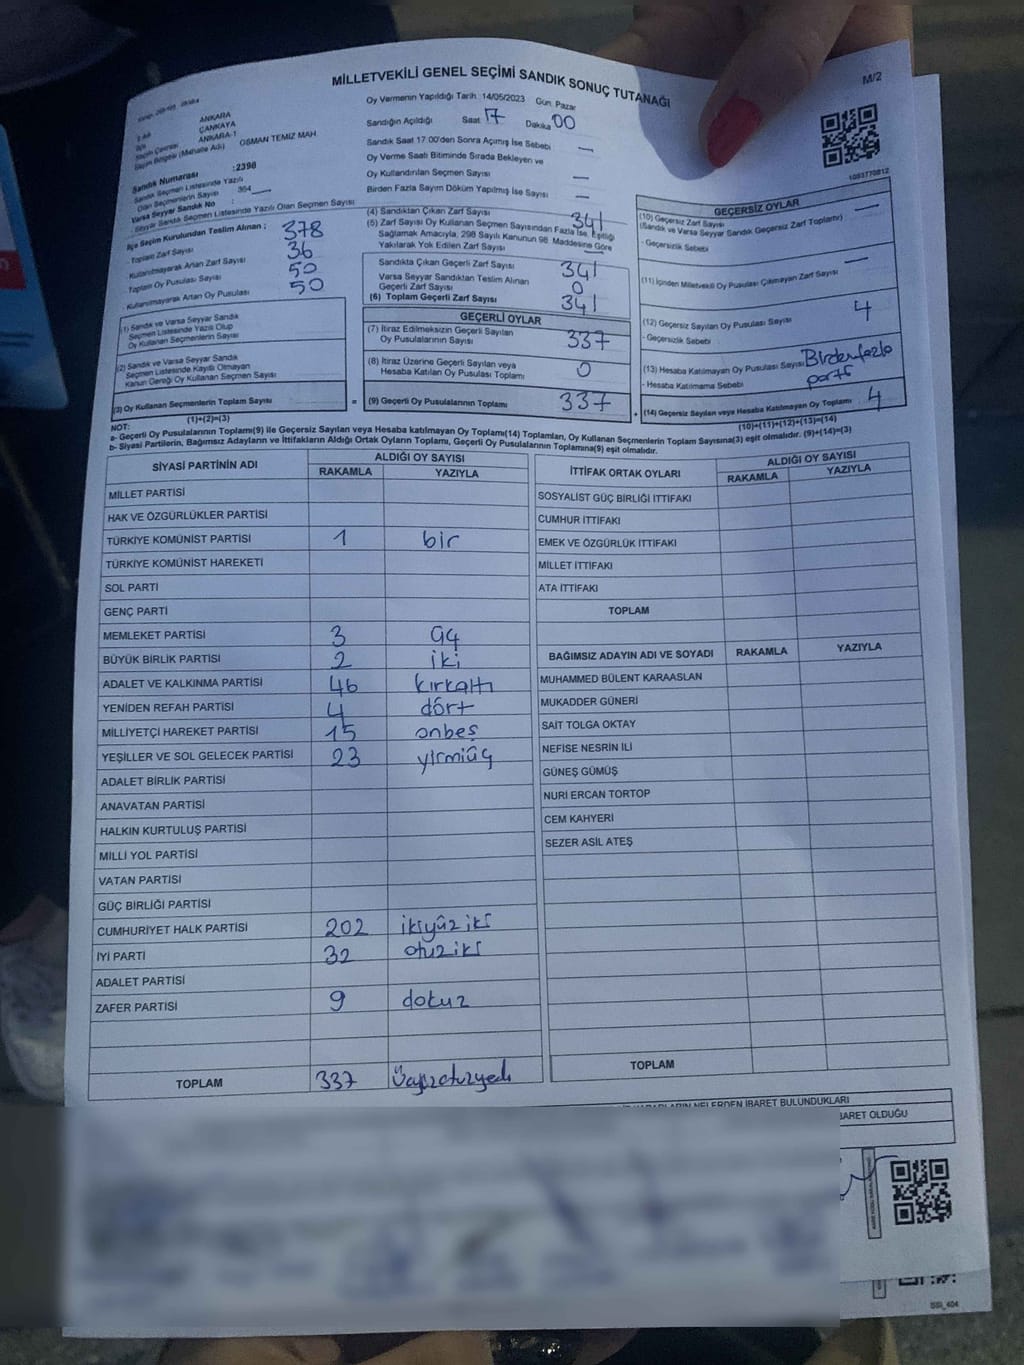 MİLLETVEKİLİ GENEL SEÇİMİ SANDIK SONUÇ TUTANAĞI
M/2
1093770812
İli
ANKARA
İlçe
ÇANKAYA
Seçim Çevresi
ANKARA-1
Seçim Bölgesi (Mahalle Adı)
OSMAN TEMİZ MAH.
Sandık Numarası :2398
Sandık Seçmen Listesinde Yazılı
Olan Seçmenlerin Sayısı 364
Varsa Seyyar Sandık No :
Seyyar Sandık Seçmen Listesinde Yazılı Olan Seçmen Sayısı
İlçe Seçim Kurulundan Teslim Alınan ;
- Toplam Zarf Sayısı 378
- Kullanılmayarak Artan Zarf Sayısı 36
- Toplam Oy Pusulası Sayısı 50
- Kullanılmayarak Artan Oy Pusulası 50
(1) Sandık ve Varsa Seyyar Sandık
Seçmen Listesinde Yazılı Olup
Oy Kullanan Seçmenlerin Sayısı
(2) Sandık ve Varsa Seyyar Sandık
Seçmen Listesinde Kayıtlı Olmayan
Kanun Gereği Oy Kullanan Seçmen Sayısı
(3) Oy Kullanan Seçmenlerin Toplam Sayısı
(1)+(2)=(3)
Oy Vermenin Yapıldığı Tarih :14/05/2023 Gün: Pazar
Sandığın Açıldığı Saat 17 Dakika 00
Sandık Saat 17.00'den Sonra Açımış İse Sebebi —
Oy Verme Saati Bitiminde Sırada Bekleyen ve
Oy Kullandırılan Seçmen Sayısı —
Birden Fazla Sayım Döküm Yapılmış İse Sayısı —
(4) Sandıktan Çıkan Zarf Sayısı 341
(5) Zarf Sayısı Oy Kullanan Seçmen Sayısından Fazla İse, Eşitliği
Sağlamak Amacıyla, 298 Sayılı Kanunun 98. Maddesine Göre
Yakılarak Yok Edilen Zarf Sayısı —
Sandıkta Çıkan Geçerli Zarf Sayısı 341
Varsa Seyyar Sandıktan Teslim Alınan
Geçerli Zarf Sayısı 0
(6) Toplam Geçerli Zarf Sayısı 341
GEÇERLİ OYLAR
(7) İtiraz Edilmeksizin Geçerli Sayılan
Oy Pusulalarının Sayısı 337
(8) İtiraz Üzerine Geçerli Sayılan veya
Hesaba Katılan Oy Pusulası Toplamı 0
= (9) Geçerli Oy Pusulalarının Toplamı 337
GEÇERSİZ OYLAR
(10) Geçersiz Zarf Sayısı —
(Sandık ve Varsa Seyyar Sandık Geçersiz Zarf Toplamı)
- Geçersizlik Sebebi
(11) İçinden Milletvekili Oy Pusulası Çıkmayan Zarf Sayısı —
(12) Geçersiz Sayılan Oy Pusulası Sayısı 4
- Geçersizlik Sebebi
(13) Hesaba Katılmayan Oy Pusulası Sayısı Birden fazla
- Hesaba Katılmama Sebebi parti
+ (14) Geçersiz Sayılan veya Hesaba Katılmayan Oy Toplamı 4
(10)+(11)+(12)+(13)=(14)
NOT:
a- Geçerli Oy Pusulalarının Toplamı(9) ile Geçersiz Sayılan veya Hesaba katılmayan Oy Toplamı(14) Toplamları, Oy Kullanan Seçmenlerin Toplam Sayısına(3) eşit olmalıdır. (9)+(14)=(3)
b- Siyasi Partilerin, Bağımsız Adayların ve İttifakların Aldığı Ortak Oyların Toplamı, Geçerli Oy Pusulalarının Toplamına(9) eşit olmalıdır.
SİYASİ PARTİNİN ADI
ALDIĞI OY SAYISI
RAKAMLA YAZIYLA
MİLLET PARTİSİ
HAK VE ÖZGÜRLÜKLER PARTİSİ
TÜRKİYE KOMÜNİST PARTİSİ 1 bir
TÜRKİYE KOMÜNİST HAREKETİ
SOL PARTİ
GENÇ PARTİ
MEMLEKET PARTİSİ 3 üç
BÜYÜK BİRLİK PARTİSİ 2 iki
ADALET VE KALKINMA PARTİSİ 46 kırkaltı
YENİDEN REFAH PARTİSİ 4 dört
MİLLİYETÇİ HAREKET PARTİSİ 15 onbeş
YEŞİLLER VE SOL GELECEK PARTİSİ 23 yirmiüç
ADALET BİRLİK PARTİSİ
ANAVATAN PARTİSİ
HALKIN KURTULUŞ PARTİSİ
MİLLİ YOL PARTİSİ
VATAN PARTİSİ
GÜÇ BİRLİĞİ PARTİSİ
CUMHURİYET HALK PARTİSİ 202 ikiyüziki
İYİ PARTİ 32 otuziki
ADALET PARTİSİ
ZAFER PARTİSİ 9 dokuz
TOPLAM 337 Üçyüzotuzyedi
İTTİFAK ORTAK OYLARI
ALDIĞI OY SAYISI
RAKAMLA YAZIYLA
SOSYALİST GÜÇ BİRLİĞİ İTTİFAKI
CUMHUR İTTİFAKI
EMEK VE ÖZGÜRLÜK İTTİFAKI
MİLLET İTTİFAKI
ATA İTTİFAKI
TOPLAM
BAĞIMSIZ ADAYIN ADI VE SOYADI RAKAMLA YAZIYLA
MUHAMMED BÜLENT KARAASLAN
MUKADDER GÜNERİ
SAİT TOLGA OKTAY
NEFİSE NESRİN İLİ
GÜNEŞ GÜMÜŞ
NURİ ERCAN TORTOP
CEM KAHYERİ
SEZER ASİL ATEŞ
TOPLAM
NELERDEN İBARET BULUNDUKLARI
İBARET OLDUĞU
SSI_404